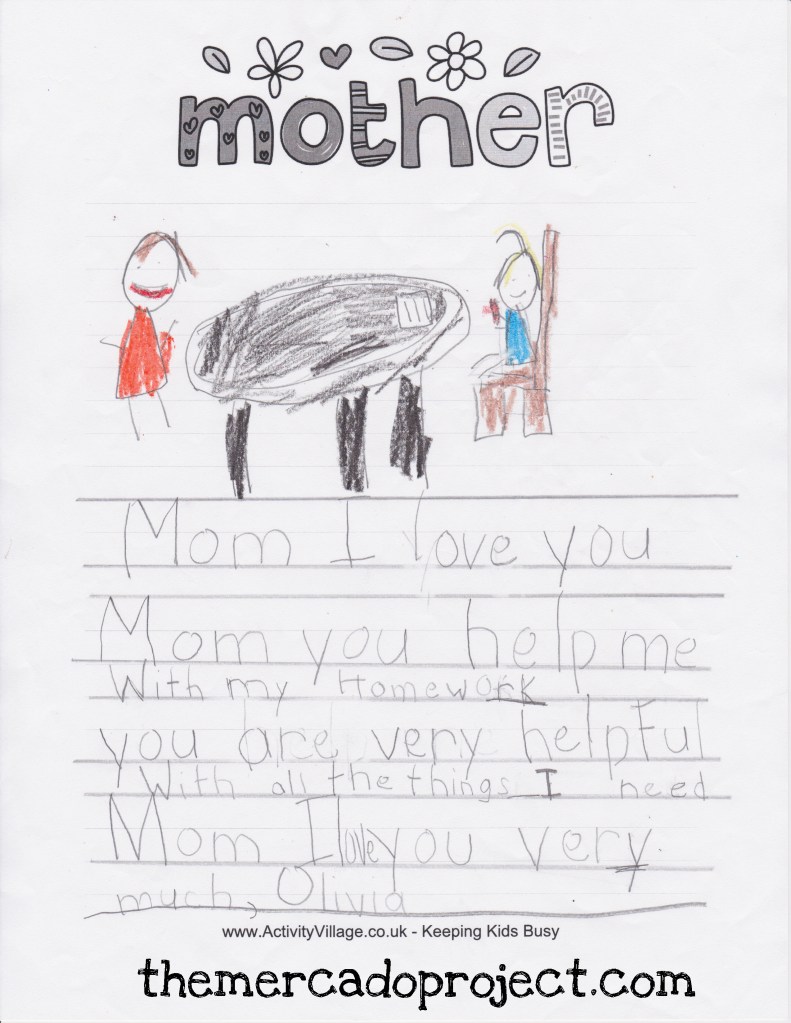 mother
Mom I love you
Mom you help me
With my Homework
you are very helpful
With all the things I need
Mom I love you very
much, Olivia
www.ActivityVillage.co.uk - Keeping Kids Busy
themercadoproject.com